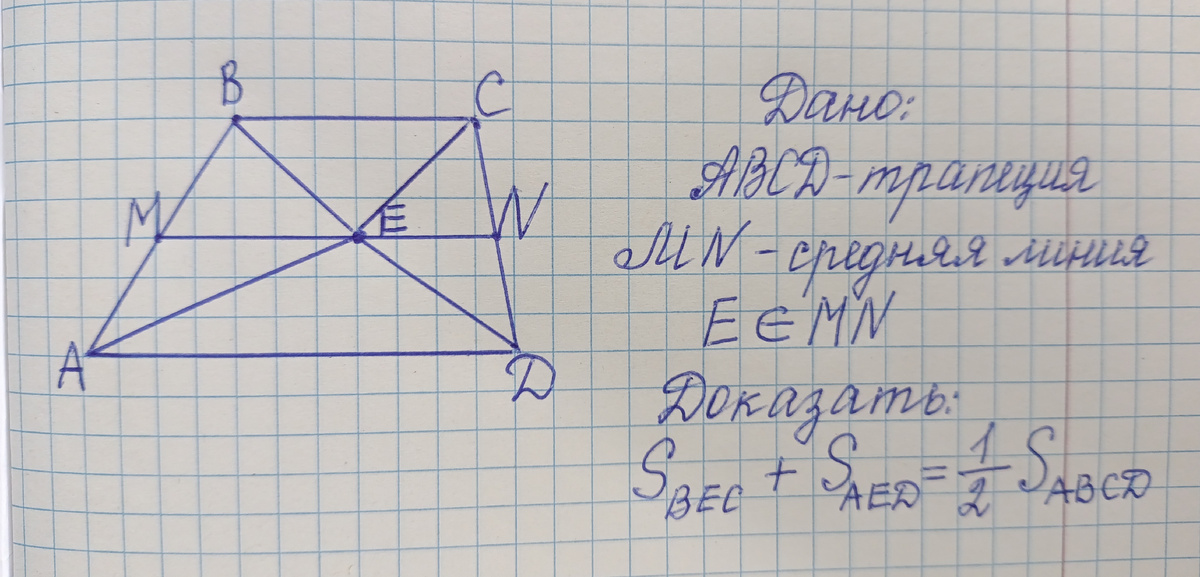 B
C
M
E
N
A
D
Дано:
ABCD - трапеция
MN - средняя линия
E ∈ MN
Доказать:
S_BEC + S_AED = 1/2 S_ABCD